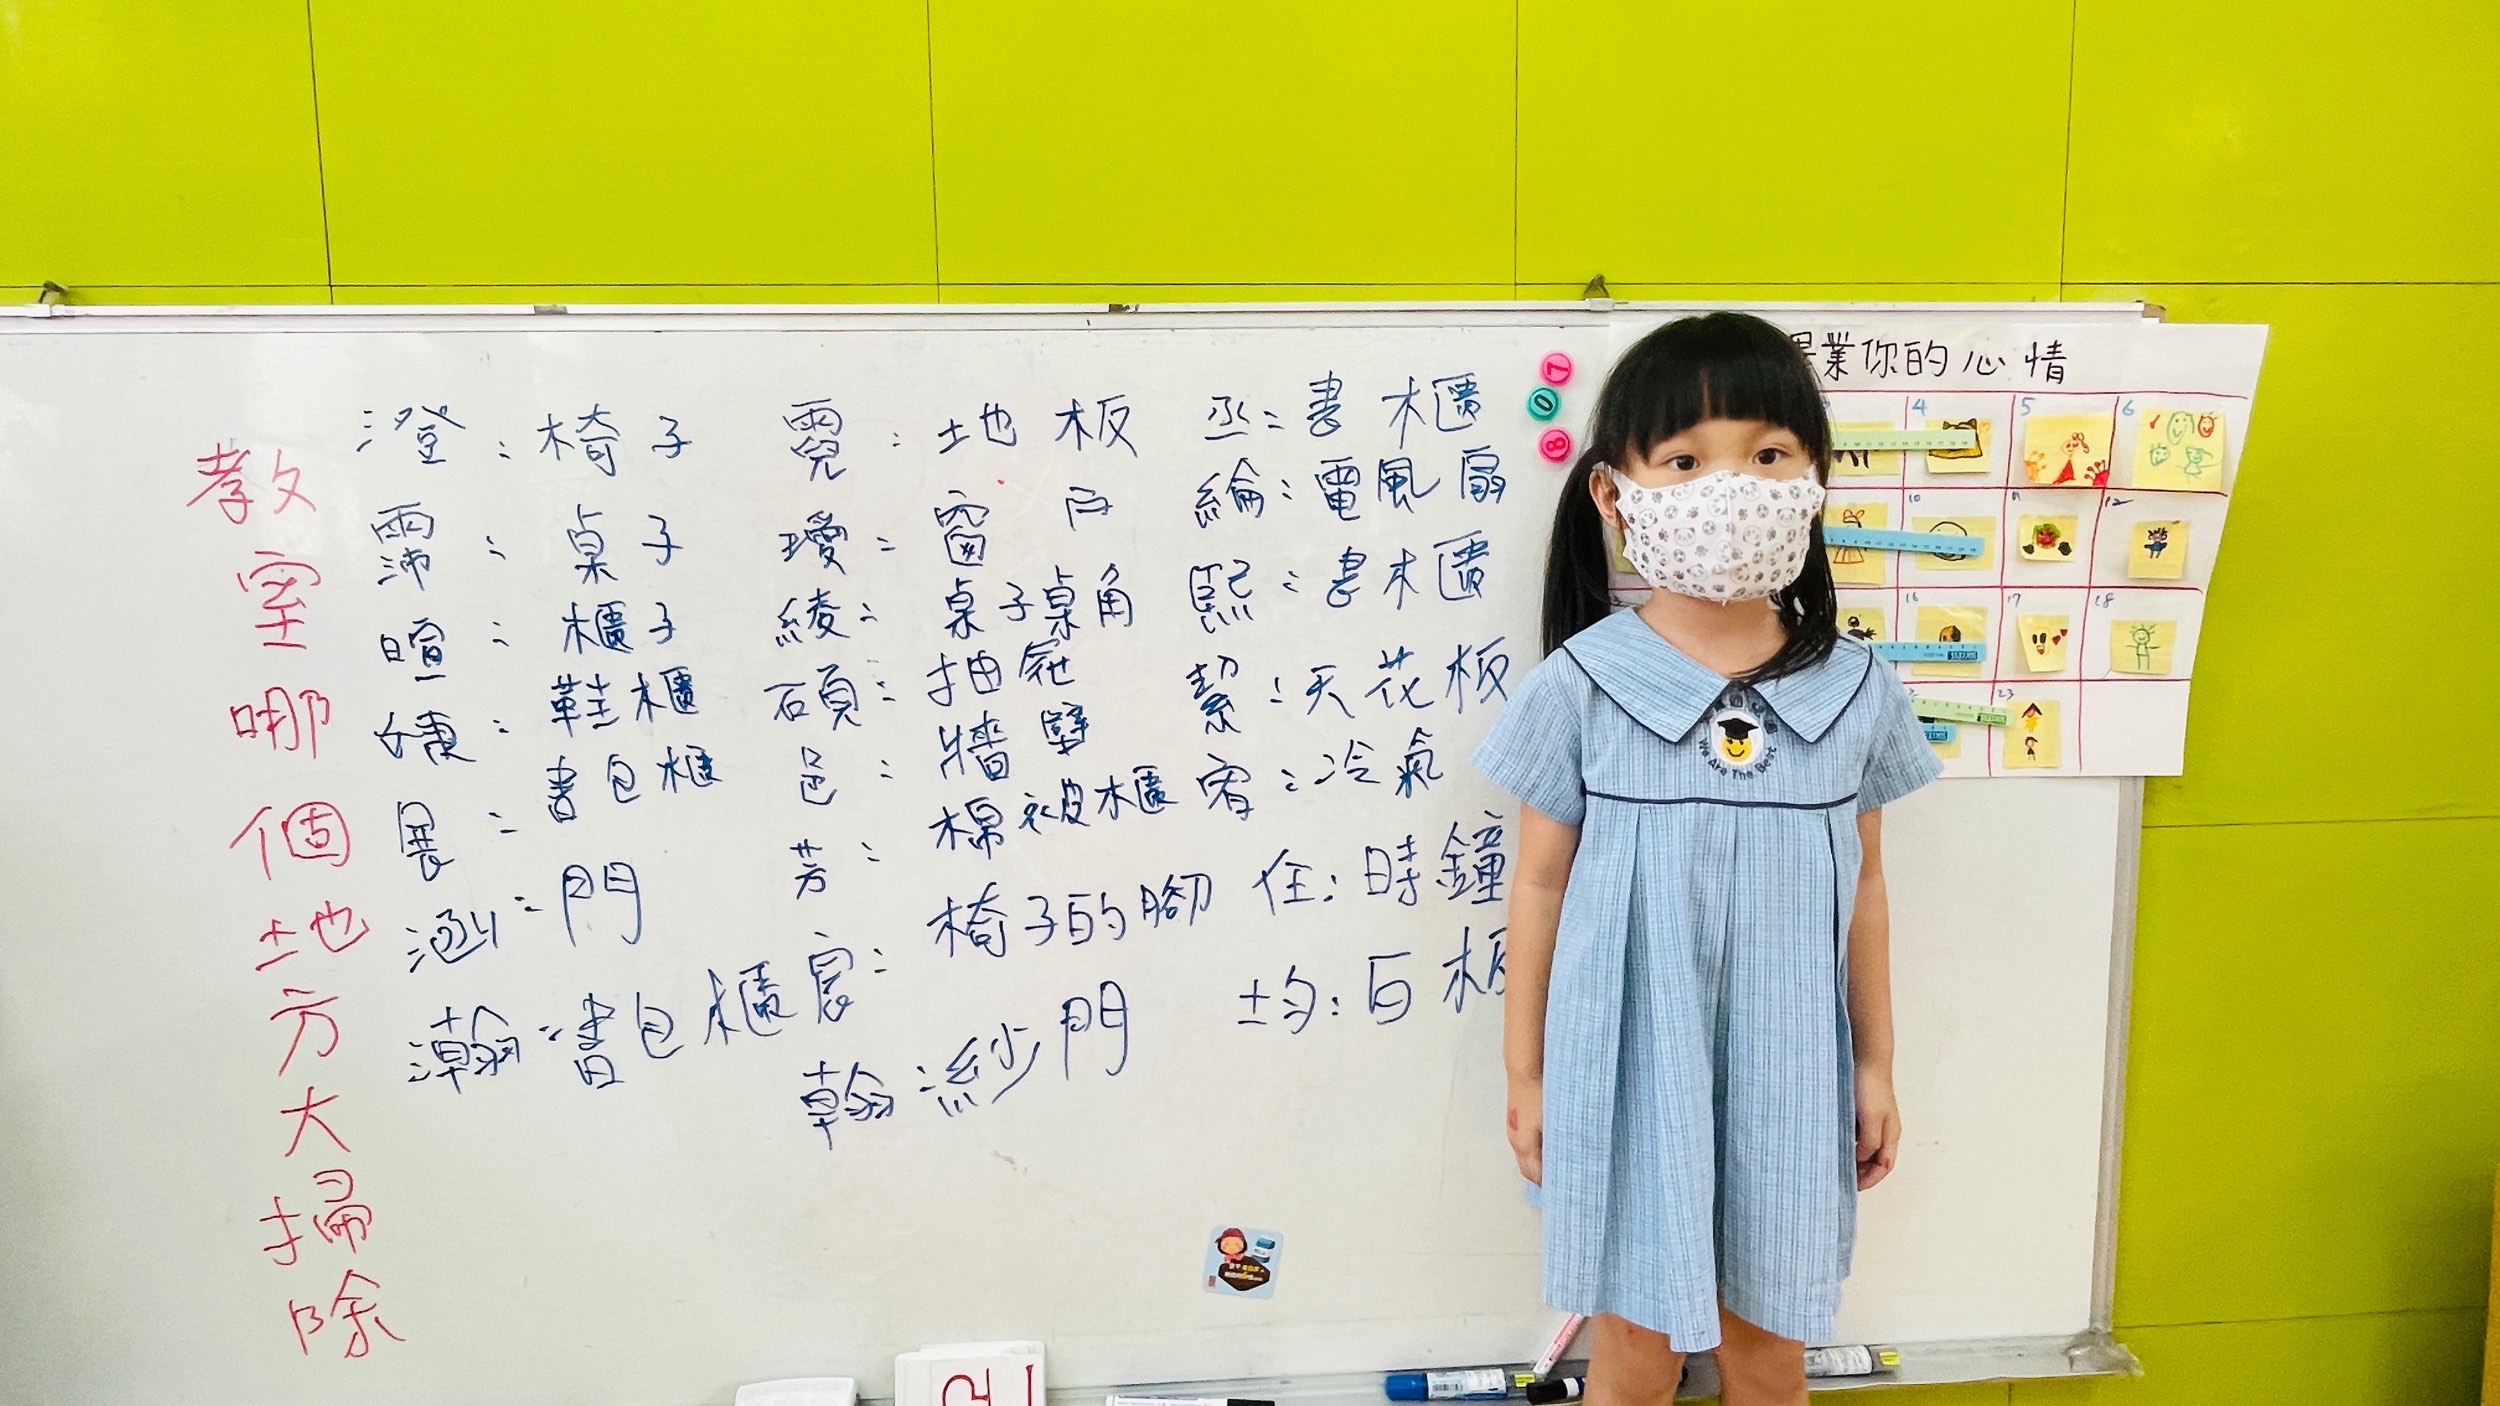 教室哪個地方大掃除
澄：椅子
霈：桌子
暄：櫃子
鞋櫃
展：書包櫃
涵：門
瀚：書包櫃
霓：地板
璦：窗戶
綾：桌子桌角
碩：抽屜
邑：牆壁
芳：棉被櫃
宸：椅子的腳
翰：紗門
丞：書櫃
綸：電風扇
熙：書櫃
絜：天花板
宥：冷氣
住：時鐘
均：白板
7
0
8
業你的心情
4
5
6
10
11
12
16
17
18
23
We Are The Best